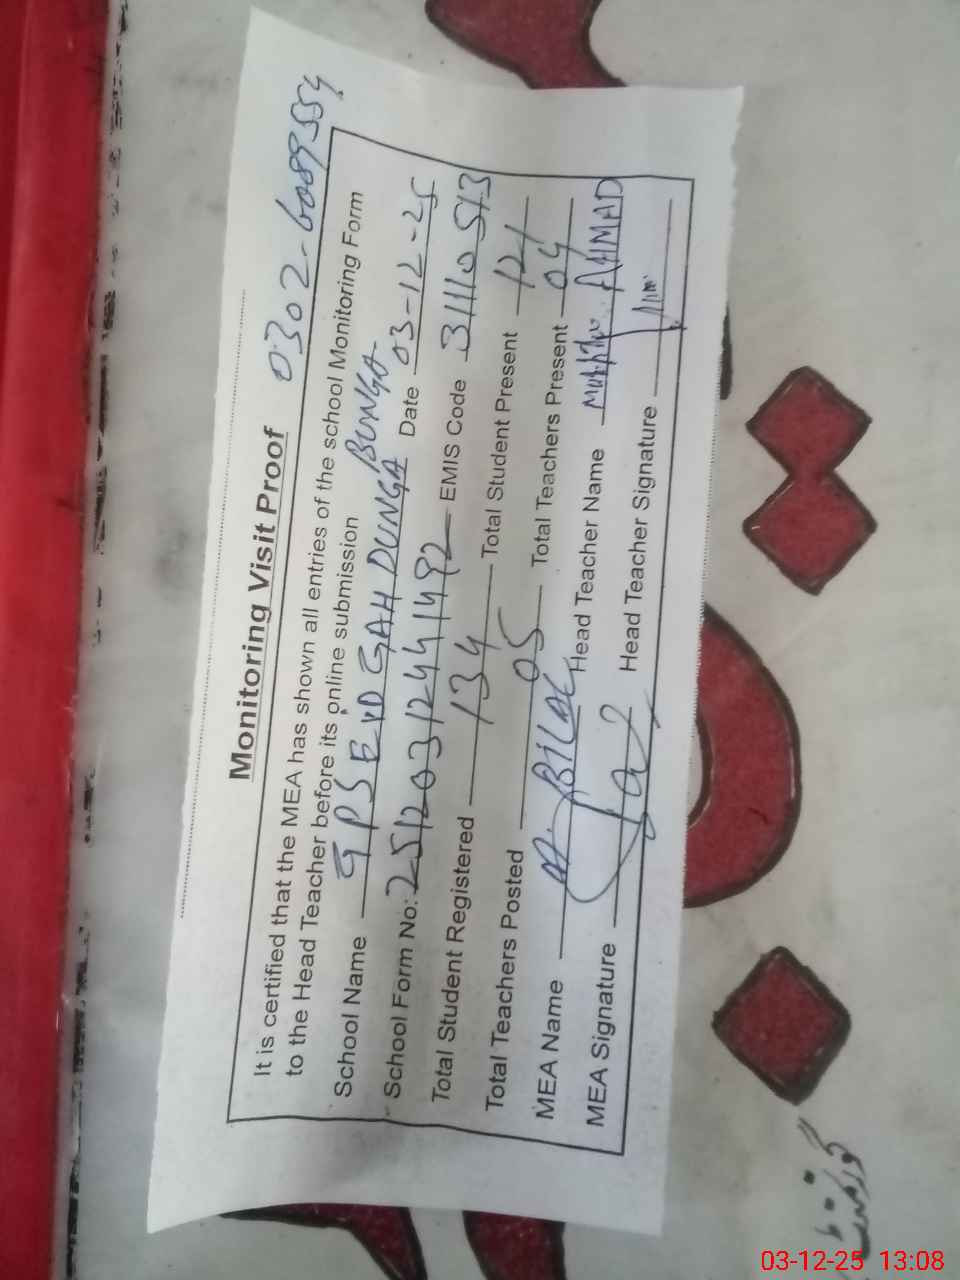 0302-6089554
Monitoring Visit Proof
It is certified that the MEA has shown all entries of the school Monitoring Form
to the Head Teacher before its online submission
School Name GPS EID GAH DUNGA BUNGA
School Form No: Date 03-12-25
Total Student Registered 134 EMIS Code 31110513
Total Teachers Posted 05 Total Student Present 121
Total Teachers Present 04
MEA Name M. BILAL Head Teacher Name AHMAD
MEA Signature Head Teacher Signature
گورنمنٹ
03-12-25 13:08